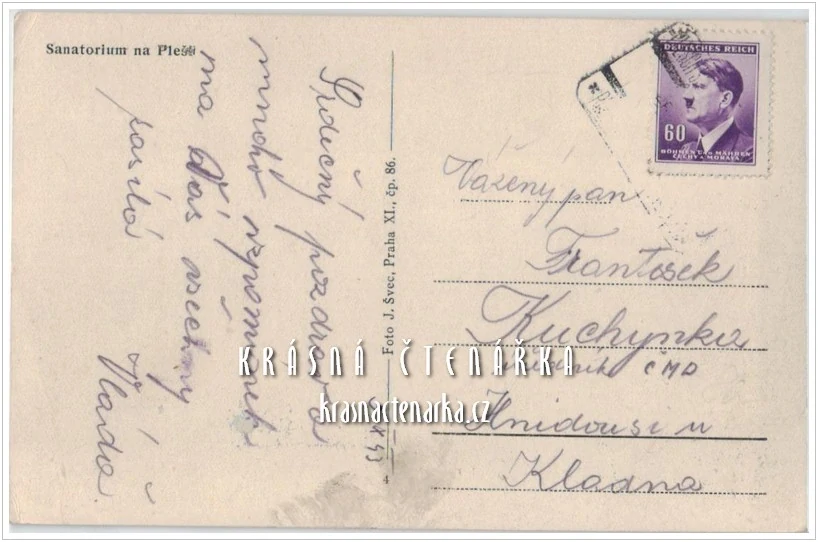 Sanatorium na Pleši
Srdečný pozdrav a
mnoho vzpomínek
na Vás všechny
posílá
Vláďa
X 43
Foto J. Švec, Praha XI., čp. 86.
4
DEUTSCHES REICH
60
BÖHMEN UND MÄHREN
ČECHY A MORAVA
Vážený pan
František
Kuchynka
ČMD
Hnidousi u
Kladna
KRÁSNÁ ČTENÁŘKA
krasnactenarka.cz